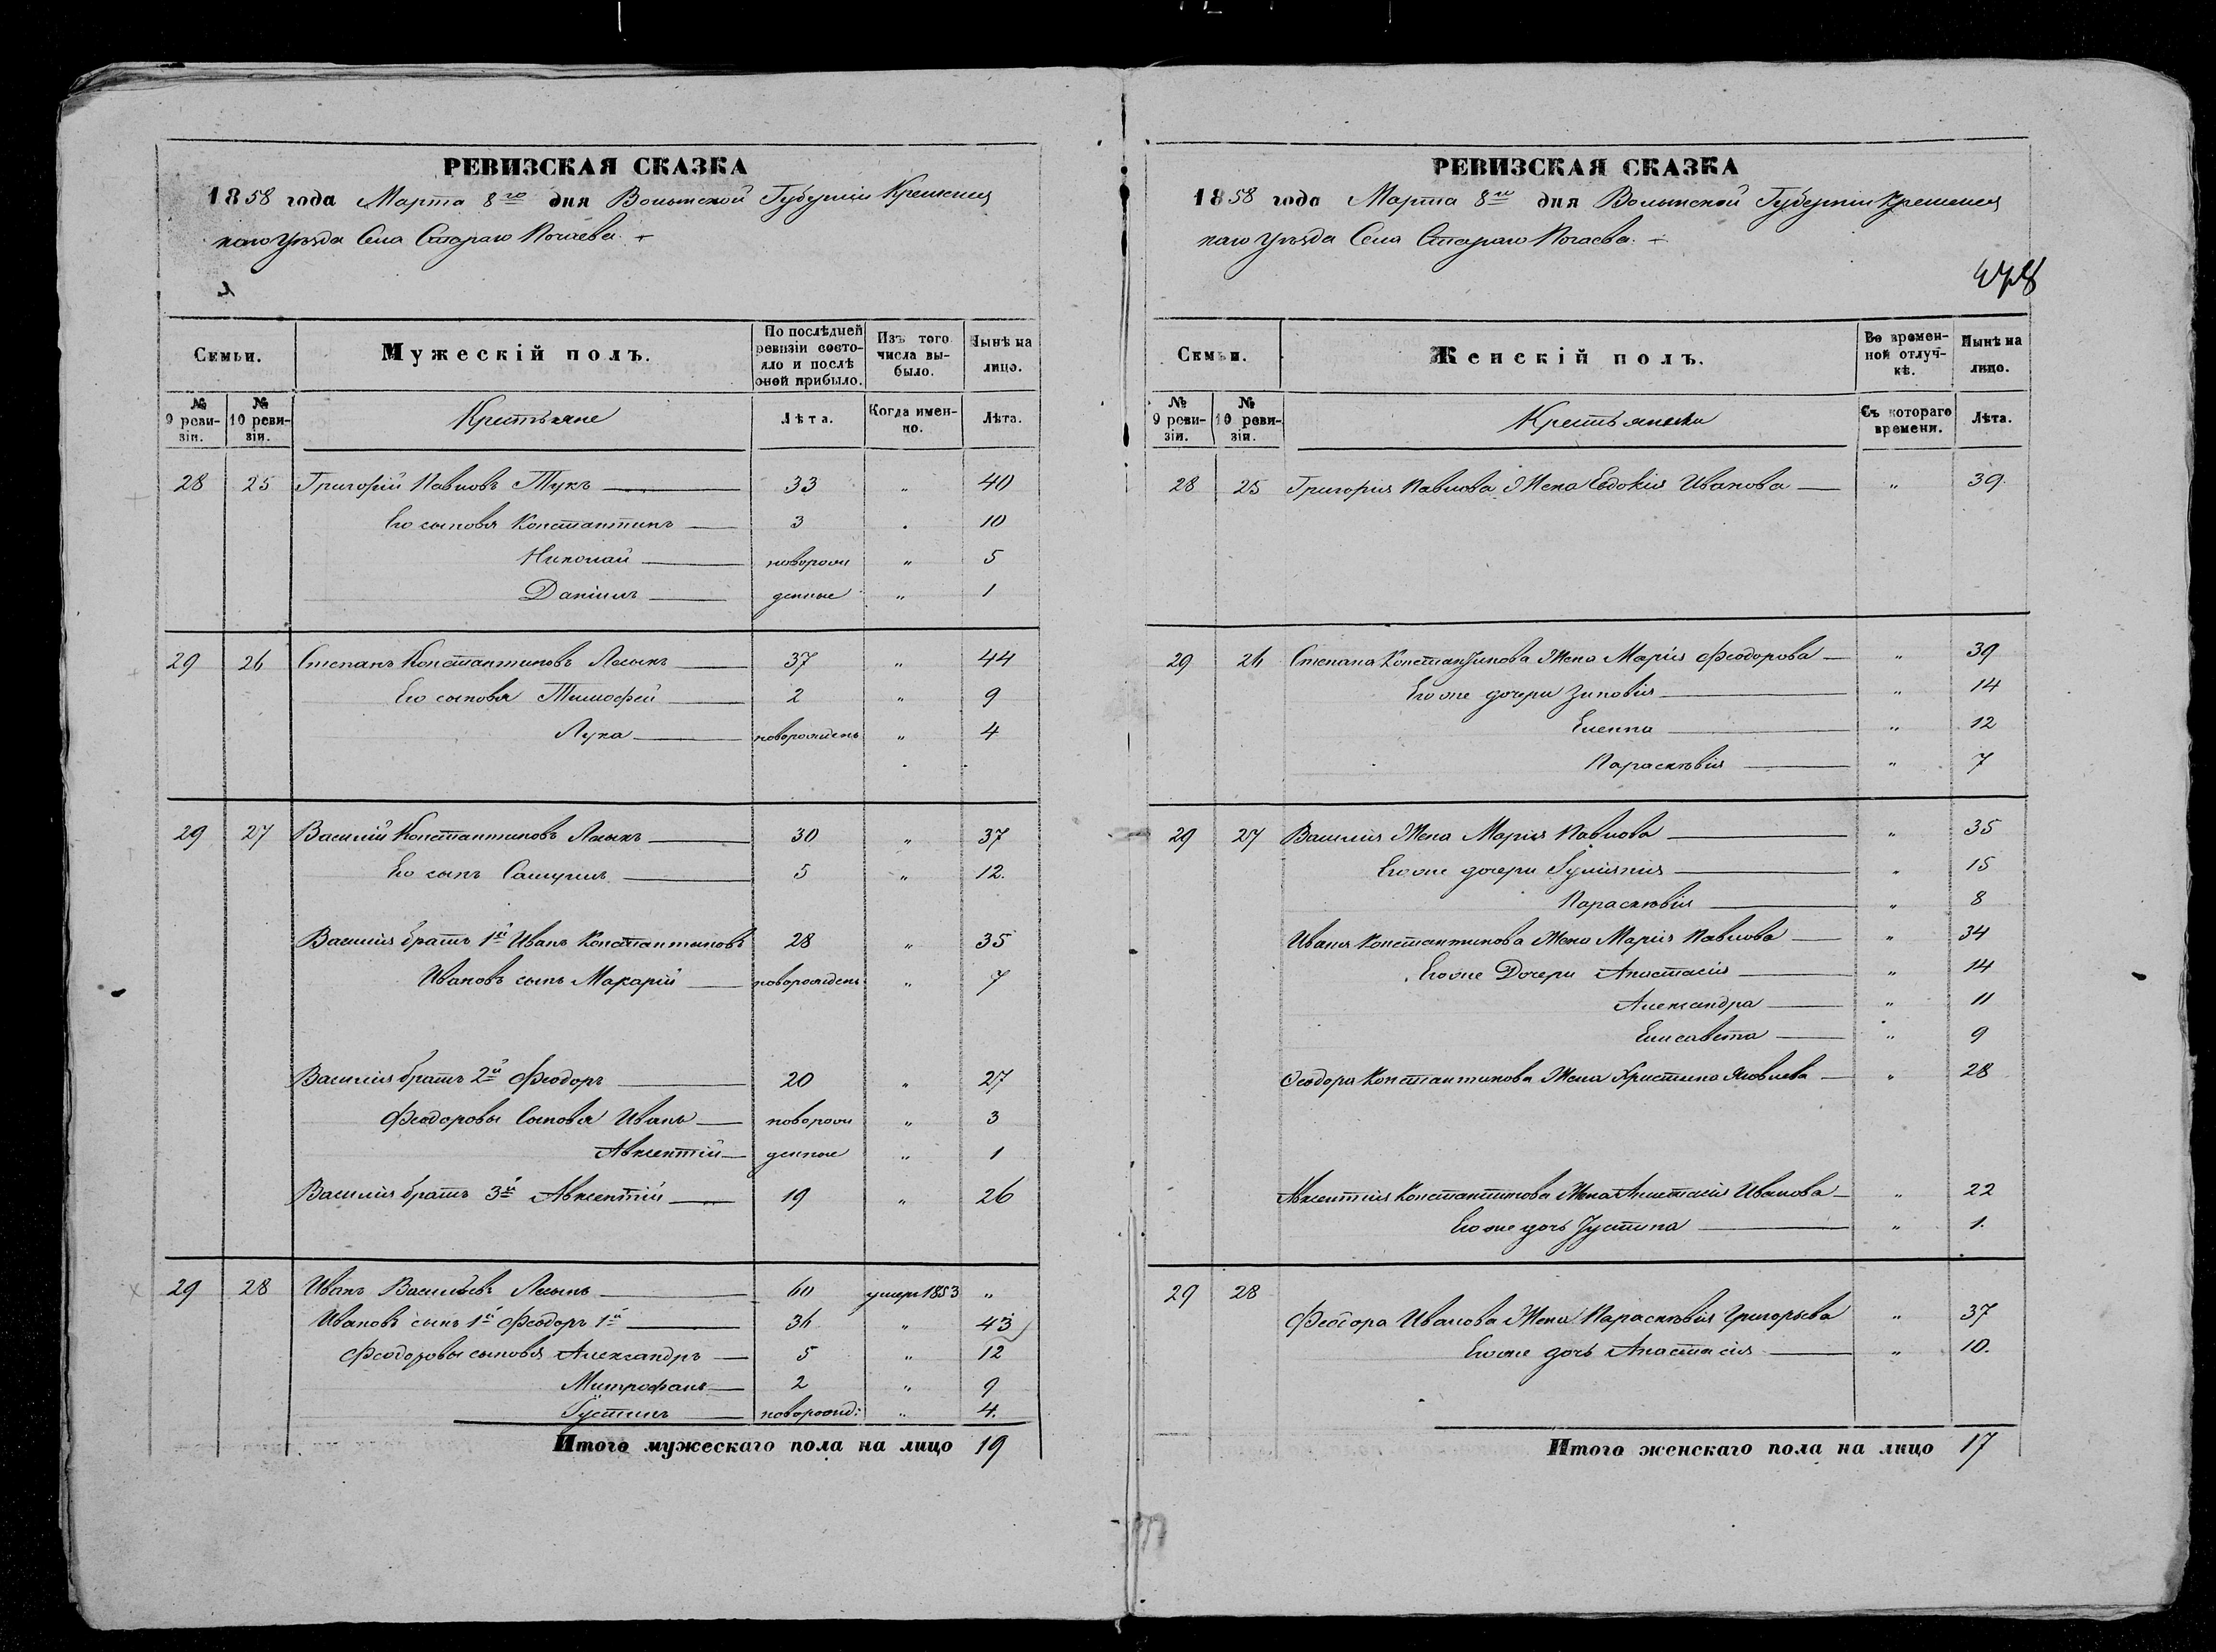 РЕВИЗСКАЯ СКАЗКА
1858 года Марта 8го дня Волынской Губерніи Кременец
каго Уѣзда Села Стараго Почаева.
Семьи.
Мужескій полъ.
По послѣдней ревизіи состояло и послѣ оной прибыло.
Изъ того числа выбыло.
Нынѣ на лицо.
№ 9 ревизіи.
№ 10 ревизіи.
Крестьяне
Лѣта.
Когда именно.
Лѣта.
28 25 Григорій Павловъ Тукъ 33 " 40
Его сыновья Константинъ 3 " 10
Николай новорож 5
Даніилъ денные " 1
29 26 Степанъ Константиновъ 37 " 44
Его сыновья Тимофей 2 " 9
Лука новорожденъ " 4
29 27 Василій Константиновъ 30 " 37
Его сынъ Самуилъ 5 " 12.
Василія братъ 1й Иванъ Константиновъ 28 " 35
Ивановъ сынъ Макарій новорожденъ " 7
Василія братъ 2й Феодоръ 20 " 27
Феодоровы Сыновья Иванъ новорож " 3
Авксентій денные " 1
Василія братъ 3й Авксентій 19 " 26
29 28 Иванъ Васильевъ 60 умеръ 1853 "
Ивановъ сынъ 1й Феодоръ 1й 36 " 43
Феодоровы сыновья Александръ 5 " 12
Митрофанъ 2 " 9
Іустинъ новорожд: " 4.
Итого мужескаго пола на лицо 19
РЕВИЗСКАЯ СКАЗКА
1858 года Марта 8го дня Волынской Губерніи Кременец
каго Уѣзда Села Стараго Почаева.
Семьи.
Женскій полъ.
Во временной отлучкѣ.
Нынѣ на лицо.
№ 9 ревизіи.
№ 10 ревизіи.
Крестьянки
Съ котораго времени.
Лѣта.
28 25 Григорія Павлова Жена Евдокія Иванова " 39.
29 26 Степана Константинова Жена Марія Феодорова " 39
Его же дочери Зиновія " 14
Еленна " 12
Параскевія " 7
29 27 Василія Жена Марія Павлова " 35
Его же дочери 15
Параскевія " 8
Ивана Константинова Жена Марія Павлова " 34
Его же Дочери Анастасія " 14
Александра " 11
Елисавета " 9
Феодора Константинова Жена Христина Яковлева " 28
Авксентія Константинова Жена Анастасія Иванова " 22
Его же дочь Іустина " 1.
29 28
Феодора Иванова Жена Параскевія Григорьева " 37
Его же дочь Анастасія " 10.
Итого женскаго пола на лицо 17